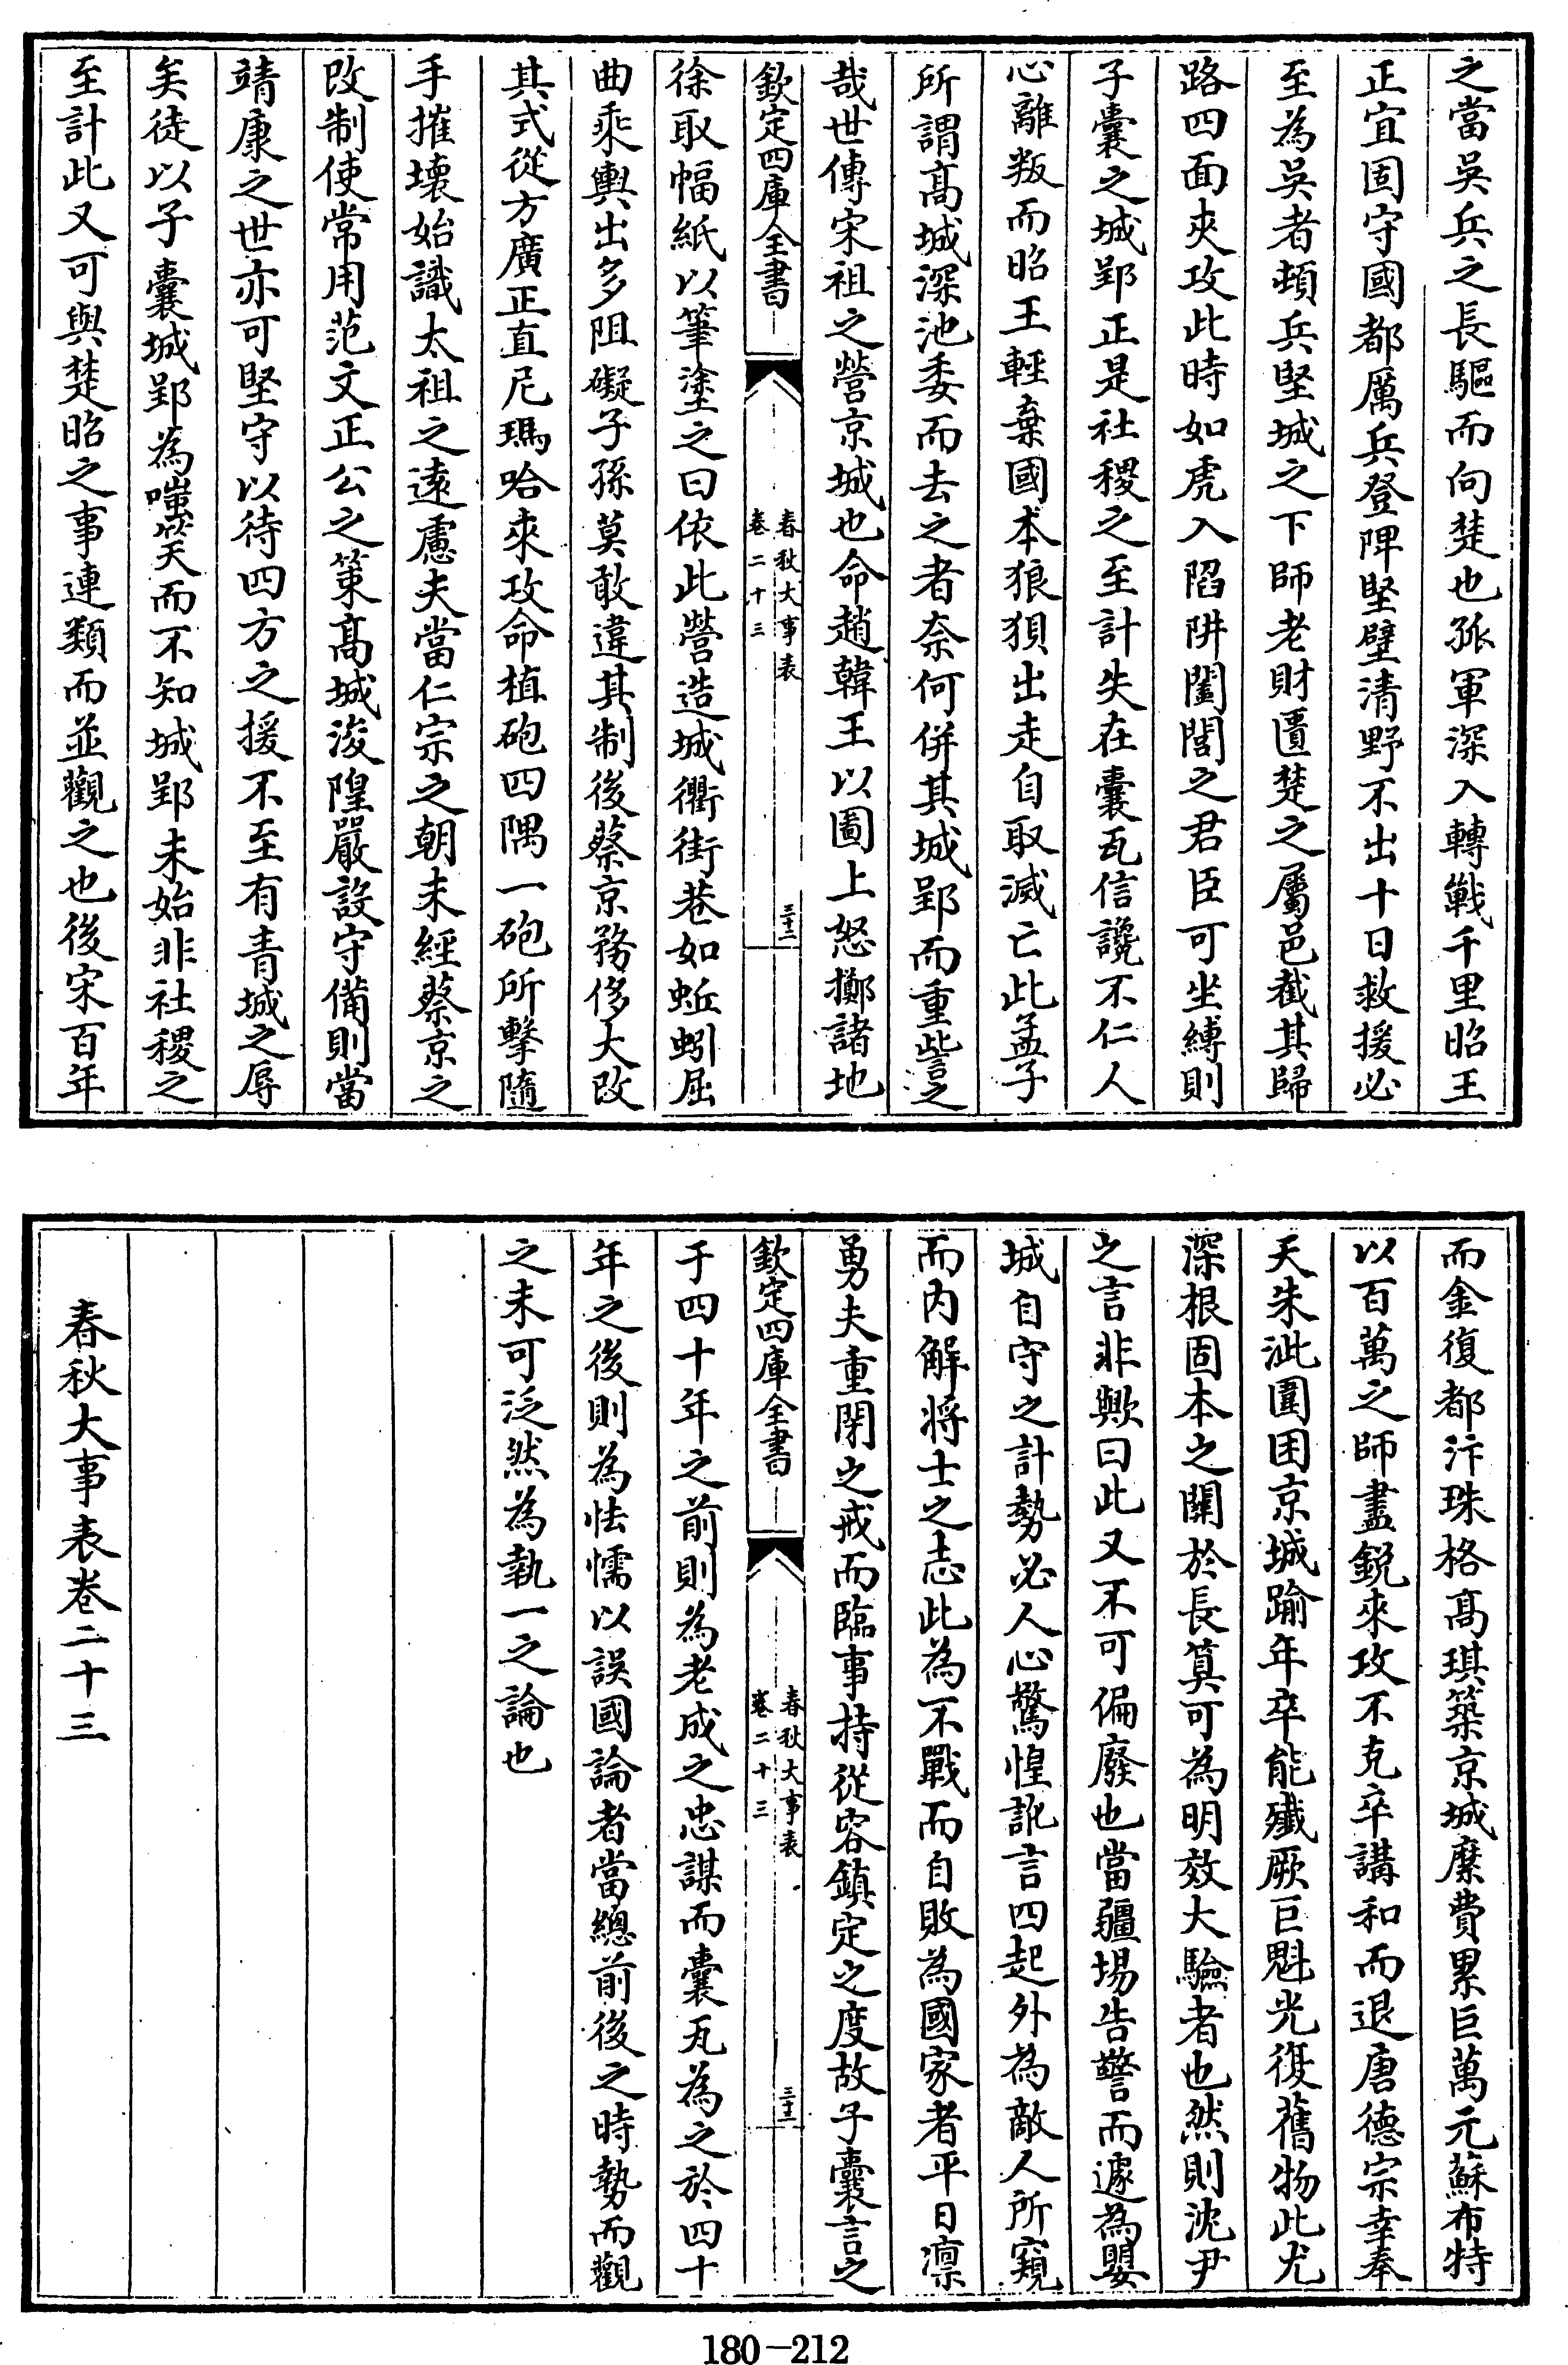 之當吳兵之長驅而向楚也孤軍深入轉戰千里昭王
正宜固守國都厲兵登陴堅壁清野不出十日救援必
至為吳者頓兵堅城之下師老財匱楚之屬邑截其歸
路四面夾攻此時如虎入陷阱闔閭之君臣可坐縛則
子囊之城郢正是社稷之至計失在囊瓦信讒不仁人
心離叛而昭王輕棄國本狼狽出走自取滅亡此孟子
所謂高城深池委而去之者奈何併其城郢而重訾之
哉世傳宋祖之營京城也命趙韓王以圖上怒擲諸地
欽定四庫全書
春秋大事表
卷二十三
三十二
徐取幅紙以筆塗之曰依此營造城衢街巷如蚯蚓屈
曲乘輿出多阻礙子孫莫敢違其制後蔡京務侈大改
其式從方廣正直尼瑪哈來攻命植砲四隅一砲所擊隨
手摧壞始識太祖之遠慮夫當仁宗之朝未經蔡京之
改制使常用范文正公之策高城浚隍嚴設守備則當
靖康之世亦可堅守以待四方之援不至有青城之辱
矣徒以子囊城郢為嗤笑而不知城郢未始非社稷之
至計此又可與楚昭之事連類而並觀之也後宋百年
而金復都汴珠格高琪築京城縻費累巨萬元蘇布特
以百萬之師盡銳來攻不克卒講和而退唐德宗幸奉
天朱泚圍困京城踰年卒能殲厥巨魁光復舊物此尤
深根固本之關於長算可為明效大驗者也然則沈尹
之言非歟曰此又不可偏廢也當疆場告警而遽為嬰
城自守之計勢必人心驚惶訛言四起外為敵人所窺
而內解將士之志此為不戰而自敗為國家者平日凜
勇夫重閉之戒而臨事持從容鎮定之度故子囊言之
欽定四庫全書
春秋大事表
卷二十三
三十三
于四十年之前則為老成之忠謀而囊瓦為之於四十
年之後則為怯懦以誤國論者當總前後之時勢而觀
之未可泛然為執一之論也
春秋大事表卷二十三
180-212